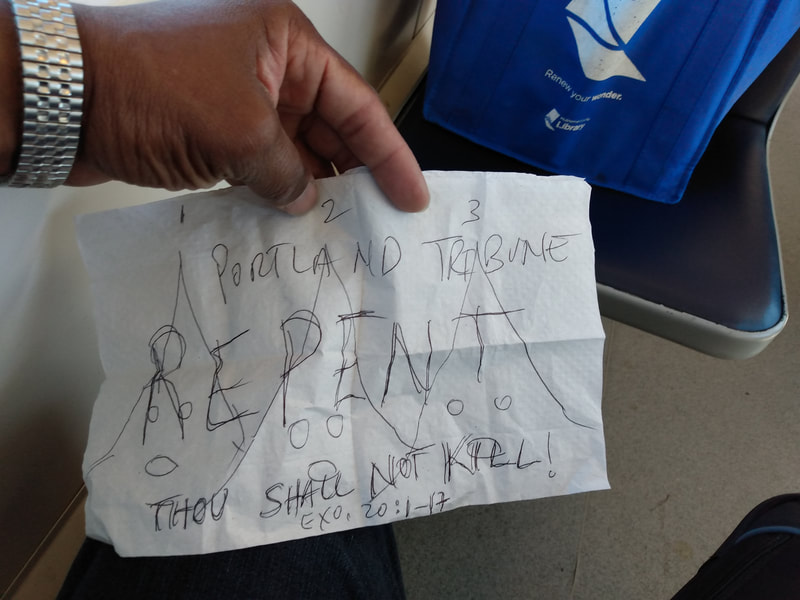 Renew your wonder.
Library
1 2 3
PORTLAND TRIBUNE
REPENT
THOU SHALL NOT KILL!
EXO. 20:1-17